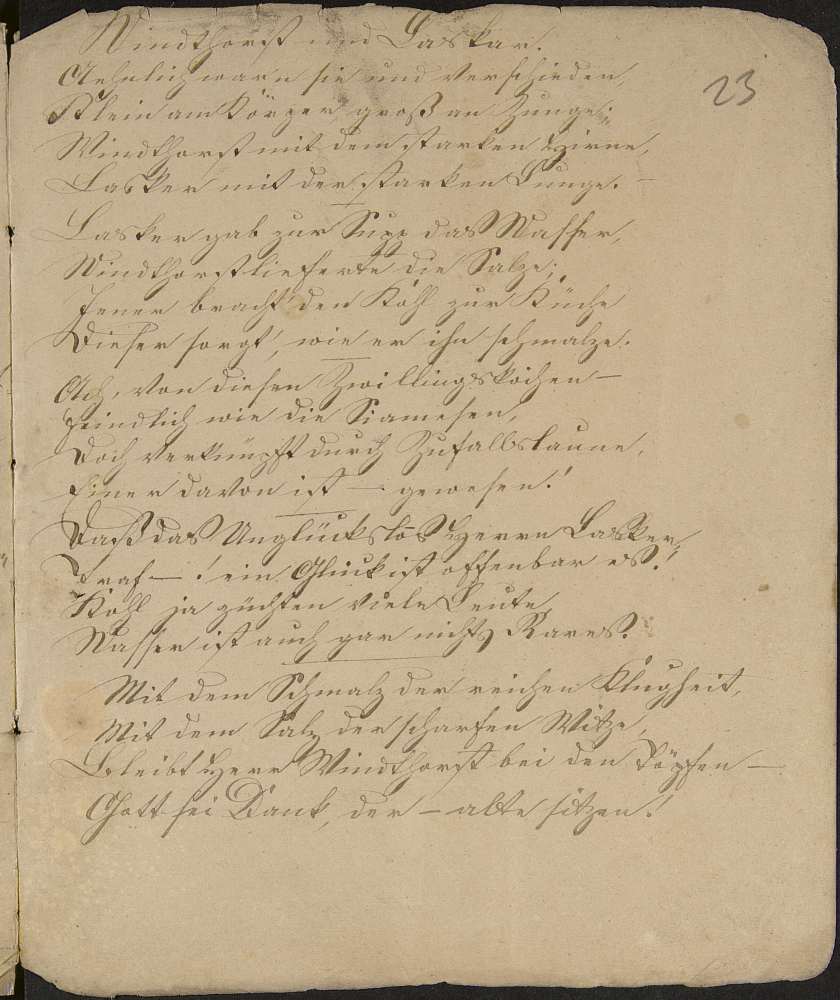 Windthorst und Lasker.
23
Aehnlich warn sie und verschieden,
Klein am Körper, groß an Zunge:
Windthorst mit dem starken Hirne,
Lasker mit der starken Lunge. –
Lasker gab zur Supp das Wasser,
Windthorst lieferte die Salze;
Jener bracht' den Kohl zur Küche
Dieser sorgt', wie er ihn schmalze.
Ach, von diesen Zwillingsköchen –
Feindlich wie die Siamesen,
Doch verknüpft durch Zufallslaune,
Einer davon ist – gewesen!
Daß das Unglückslos Herrn Lasker,
Traf – ! ein Glück ist offenbar es!
Kohl ja züchten viele Leute,
Wasser ist auch gar nichts Rares.
Mit dem Schmalz der reichen Klugheit,
Mit dem Salz der scharfen Witze,
Bleibt Herr Windthorst bei den Töpfen –
Gott sei Dank, der – alte sitzen!